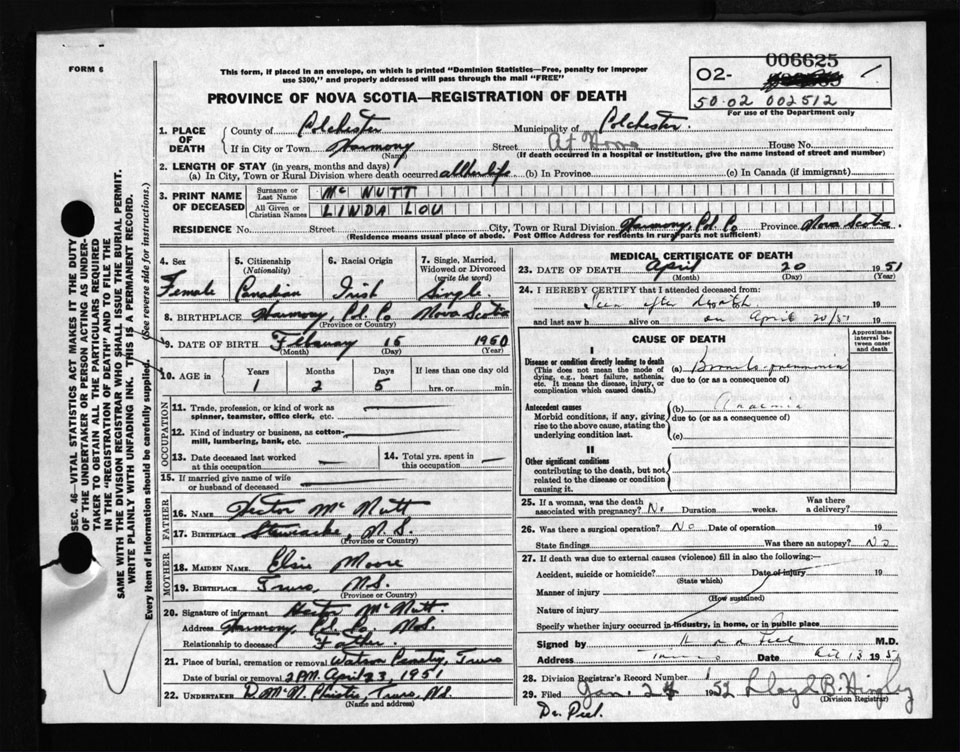 FORM 6
This form, if placed in an envelope, on which is printed "Dominion Statistics—Free, penalty for improper
use $300," and properly addressed will pass through the mail "FREE"
006625
02-
50·02 002512
For use of the Department only
PROVINCE OF NOVA SCOTIA—REGISTRATION OF DEATH
1. PLACE OF DEATH
County of Colchester Municipality of Colchester.
If in City or Town Harmony Street At Home House No.
(Name) (If death occurred in a hospital or institution, give the name instead of street and number)
2. LENGTH OF STAY (in years, months and days)
(a) In City, Town or Rural Division where death occurred all her life (b) In Province (c) In Canada (if immigrant)
3. PRINT NAME OF DECEASED
Surname or Last Name Mc NUTT
All Given or Christian Names LINDA LOU
RESIDENCE No. Street City, Town or Rural Division Harmony, Col. Co Province Nova Scotia.
(Residence means usual place of abode. Post Office Address for residents in rural parts not sufficient)
4. Sex Female
5. Citizenship (Nationality) Canadian
6. Racial Origin Irish
7. Single, Married, Widowed or Divorced (write the word) Single
8. BIRTHPLACE Harmony, Col. Co Nova Scotia
(Province or Country)
9. DATE OF BIRTH February 15 1950
(Month) (Day) (Year)
10. AGE in Years Months Days If less than one day
1 2 5 hrs. or min.
OCCUPATION
11. Trade, profession, or kind of work as spinner, teamster, office clerk, etc.
12. Kind of industry or business, as cotton-mill, lumbering, bank, etc.
13. Date deceased last worked at this occupation
14. Total yrs. spent in this occupation
15. If married give name of wife or husband of deceased
FATHER
16. NAME Hector Mc Nutt
17. BIRTHPLACE Stewiacke, N.S.
(Province or Country)
MOTHER
18. MAIDEN NAME Elsie Moore
19. BIRTHPLACE Truro, N.S.
(Province or Country)
20. Signature of informant Hector McNutt.
Address Harmony, Col. Co. N.S.
Relationship to deceased Father
21. Place of burial, cremation or removal Watson Truro
Date of burial or removal 2 P.M. April 23, 1951
22. UNDERTAKER Truro, N.S.
(Name and address)
MEDICAL CERTIFICATE OF DEATH
23. DATE OF DEATH April 20 1951
(Month) (Day) (Year)
24. I HEREBY CERTIFY that I attended deceased from:
Seen after death 19
and last saw h alive on on April 20/51 19
CAUSE OF DEATH
Approximate interval between onset and death
I
Disease or condition directly leading to death
(This does not mean the mode of dying, e.g., heart failure, asthenia, etc. It means the disease, injury, or complication which caused death.)
(a) Broncho-pneumonia
due to (or as a consequence of)
Antecedent causes
Morbid conditions, if any, giving rise to the above cause, stating the underlying condition last.
(b) Anaemia
due to (or as a consequence of)
(c)
II
Other significant conditions
contributing to the death, but not related to the disease or condition causing it.
25. If a woman, was the death associated with pregnancy? No Duration weeks. Was there a delivery?
26. Was there a surgical operation? No Date of operation 19
State findings Was there an autopsy? No
27. If death was due to external causes (violence) fill in also the following:—
Accident, suicide or homicide? Date of injury 19
(State which)
Manner of injury
(How sustained)
Nature of injury
Specify whether injury occurred in industry, in home, or in public place
Signed by M.D.
Address Truro Date 13 195
28. Division Registrar's Record Number 1
29. Filed Jan. 24 1952 Lloyd B. Hingley
(Division Registrar)
SEC. 46—VITAL STATISTICS ACT MAKES IT THE DUTY
OF THE UNDERTAKER OR PERSON ACTING AS UNDER-
TAKER TO OBTAIN ALL THE PARTICULARS REQUIRED
IN THE "REGISTRATION OF DEATH" AND TO FILE THE
SAME WITH THE DIVISION REGISTRAR WHO SHALL ISSUE THE BURIAL PERMIT.
WRITE PLAINLY WITH UNFADING INK. THIS IS A PERMANENT RECORD.
Every item of information should be carefully supplied. (See reverse side for instructions.)